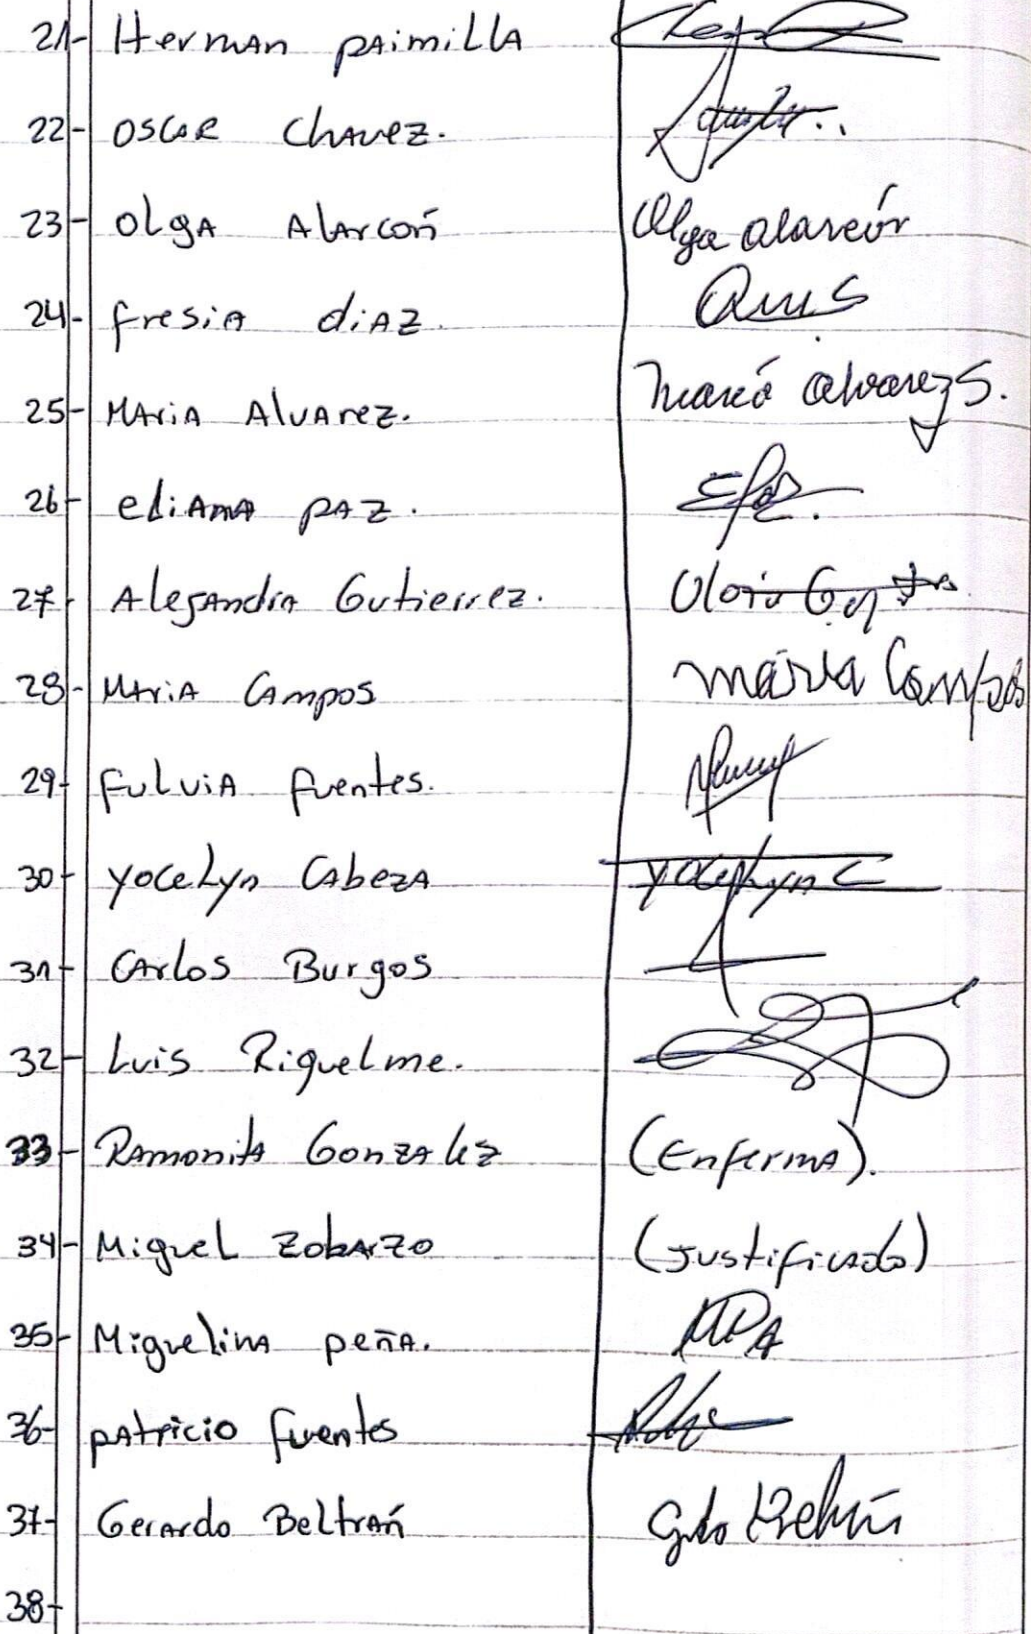 21- Herman PAimiLLA
22- OSCAR CHAVEZ.
23- OLgA ALArcoń Olga alarcón
24- fresia diAZ.
25- MAriA ALVArez. María alvarez S.
26- eLiAnA PAZ. EPaz.
27- ALejAndrA Gutierrez.
28- MAriA CAmpos María Campos
29- fuLviA fuentes.
30- YoceLyn CAbezA Yocelyn C
31- CArLos Burgos
32- Luis RiqueLme.
33- RAmonitA GonzALez (EnfermA).
34- MigueL ZobArzo (Justificado)
35- MigueLinA peñA. MPA
36- pAtricio fuentes
37- GerArdo BeLtrAń
38-